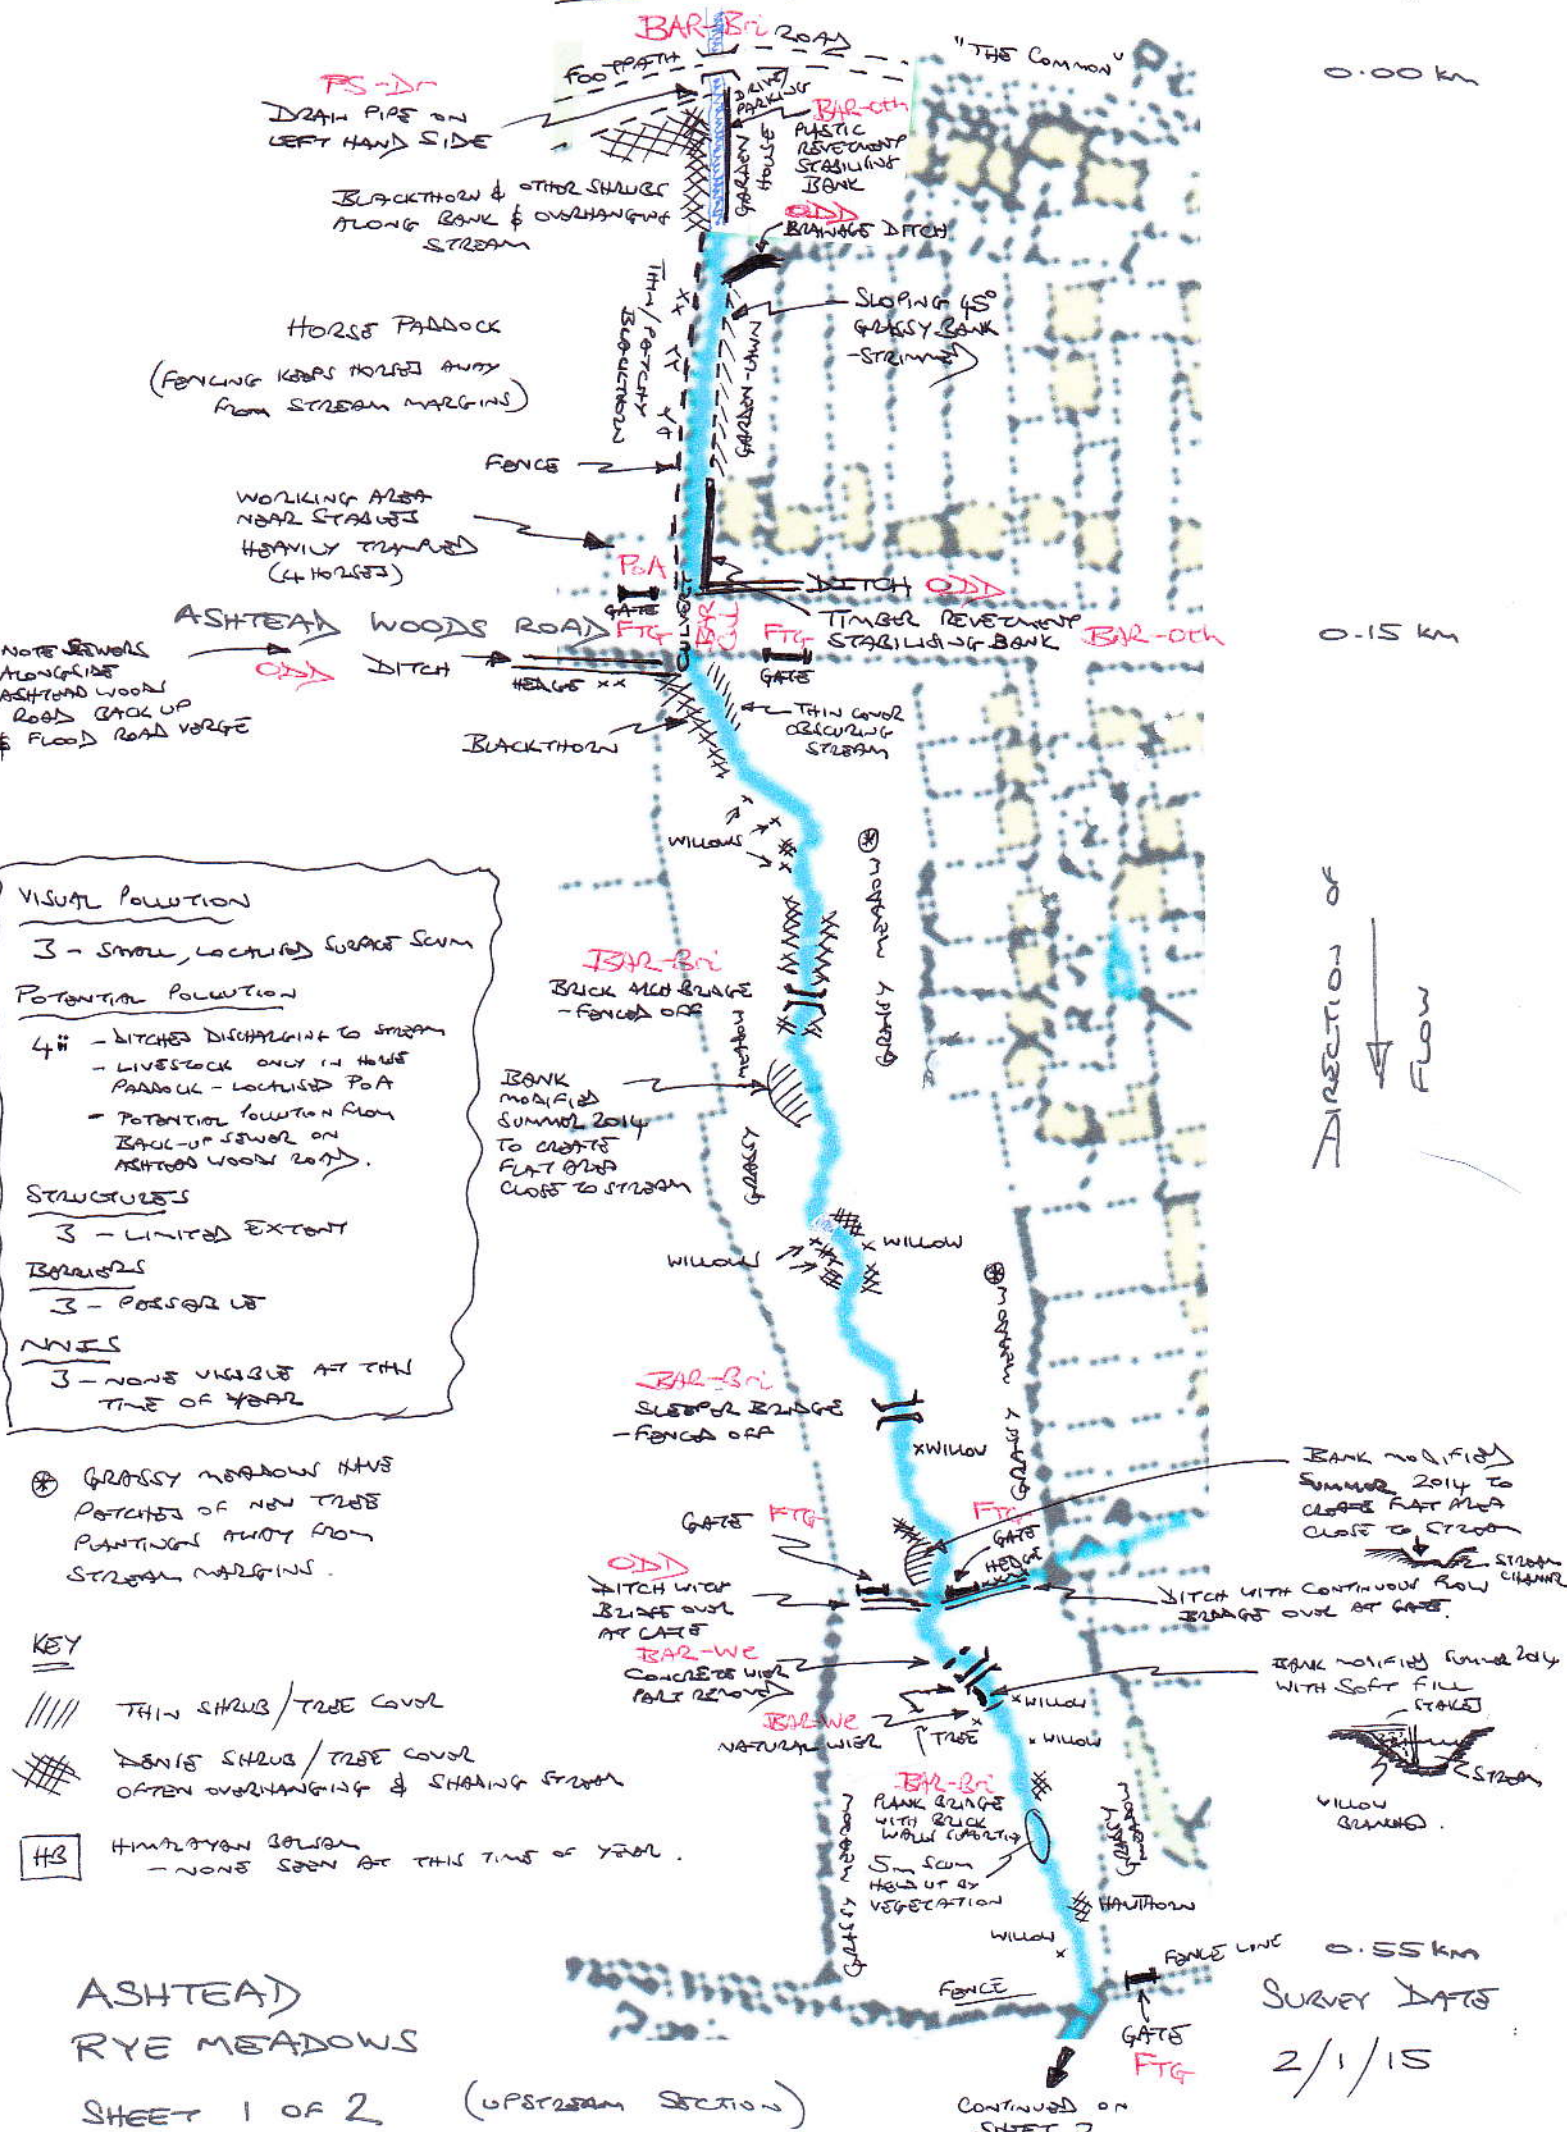 BAR-Bri
ROAD
FOOTPATH
"THE COMMON"
0.00 km
PS-Dr
DRAIN PIPE ON
LEFT HAND SIDE
DRIVE/
PARKING
BAR-Oth
PLASTIC
REVETMENT
STABILISING
BANK
GARDEN
HOUSE
BLACKTHORN & OTHER SHRUBS
ALONG BANK & OVERHANGING
STREAM
ODD
DRAINAGE DITCH
THIN/PATCHY
BLACKTHORN
SLOPING 45°
GRASSY BANK
-STRIMMED
GARDEN-LAWN
HORSE PADDOCK
(FENCING KEEPS HORSES AWAY
FROM STREAM MARGINS)
FENCE
WORKING AREA
NEAR STABLES
HEAVILY TRAMPLED
(4 HORSES)
PoA
GATE
FTG
CULVERT
BAR
CUL
DITCH ODD
TIMBER REVETMENT
STABILISING BANK
BAR-Oth
FTG
GATE
ASHTEAD WOODS ROAD
0.15 km
NOTE SEWERS
ALONGSIDE
ASHTEAD WOODS
ROAD BACK UP
& FLOOD ROAD VERGE
ODD
DITCH
HEDGE xx
BLACKTHORN
THIN COVER
OBSCURING
STREAM
WILLOWS
GRASSY MEADOW
VISUAL POLLUTION
3 - SMALL, LOCALISED SURFACE SCUM
POTENTIAL POLLUTION
4ii - DITCHES DISCHARGING TO STREAM
- LIVESTOCK ONLY IN HORSE
PADDOCK - LOCALISED PoA
- POTENTIAL POLLUTION FROM
BACK-UP SEWER ON
ASHTEAD WOODS ROAD.
STRUCTURES
3 - LIMITED EXTENT
BARRIERS
3 - PASSABLE
NNIS
3 - NONE VISIBLE AT THIS
TIME OF YEAR
BAR-Bri
BRICK ARCH BRIDGE
- FENCED OFF
DIRECTION OF
FLOW
BANK
MODIFIED
SUMMER 2014
TO CREATE
FLAT AREA
CLOSE TO STREAM
GRASSY MEADOW
WILLOWS
WILLOW
GRASSY MEADOW
BAR-Bri
SLEEPER BRIDGE
- FENCED OFF
x WILLOW
GRASSY MEADOWS HAVE
PATCHES OF NEW TREE
PLANTINGS AWAY FROM
STREAM MARGINS.
BANK MODIFIED
SUMMER 2014 TO
CREATE FLAT AREA
CLOSE TO STREAM
STREAM
CHANNEL
GATE FTG
FTG
GATE
HEDGE
ODD
DITCH WITH
BRIDGE OVER
AT GATE
DITCH WITH CONTINUOUS FLOW
BRIDGE OVER AT GATE.
BAR-We
CONCRETE WIER
PART REMOVED
BANK MODIFIED SUMMER 2014
WITH SOFT FILL
STAKES
STREAM
WILLOW
BRANCHES.
BAR-We
NATURAL WIER
TREE
x WILLOW
x WILLOW
KEY
THIN SHRUB/TREE COVER
DENSE SHRUB/TREE COVER
OFTEN OVERHANGING & SHADING STREAM
HB
HIMALAYAN BALSAM
- NONE SEEN AT THIS TIME OF YEAR.
BAR-Bri
PLANK BRIDGE
WITH BRICK
WALL
5m SCUM
HELD UP BY
VEGETATION
GRASSY MEADOW
GRASSY
MEADOW
HAWTHORN
WILLOW
x
FENCE LINE
0.55 km
FENCE
GATE
FTG
SURVEY DATE
2/1/15
ASHTEAD
RYE MEADOWS
SHEET 1 OF 2 (UPSTREAM SECTION)
CONTINUED ON
SHEET 2